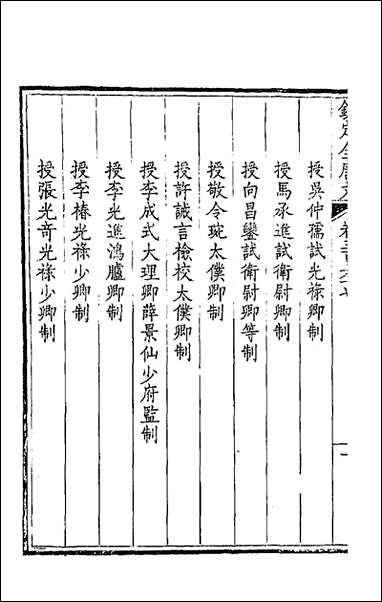 欽定全唐文 卷三百六十七 一
授吳仲孺試光祿卿制
授馬承進試衛尉卿制
授向昌鑾試衛尉卿等制
授敬令琬太僕卿制
授許誠言檢校太僕卿制
授李成式大理卿薛景仙少府監制
授李光進鴻臚卿制
授李椿光祿少卿制
授張光奇光祿少卿制